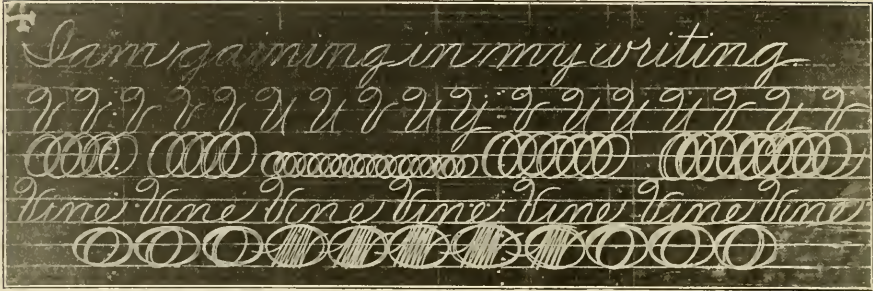 4
I am gaining in my writing.
V V V V V U U V U Y V U U U V Y V
Vine Vine Vine Vine Vine Vine Vine